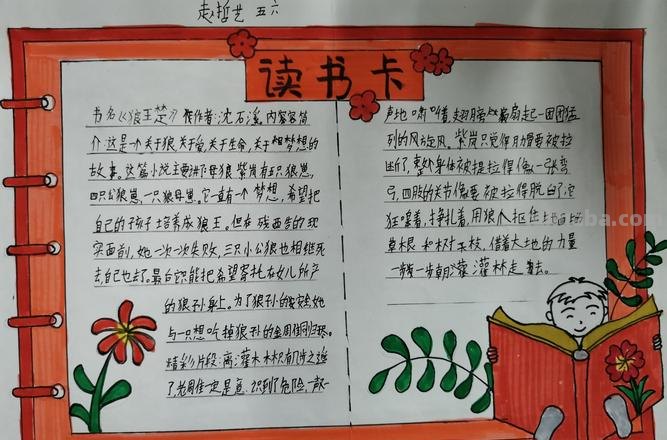 赵哲艺 五六
读书卡
书名《狼王梦》 作者:沈石溪 内容简
介:这是一个关于狼,关于爱,关于生命,关于梦想的
故事。这篇小说主要讲了母狼紫岚有五只狼崽,
四只公狼崽,一只狼母崽。它一直有一个梦想,希望把
自己的孩子培养成狼王。但在残酷的现
实面前,她一次一次失败,三只小公狼也相继死
去,自己也去了。最后只能把希望寄托在女儿所产
的狼孙身上。为了狼孙的安全她
与一只想吃掉狼孙的金雕同归于尽。
精彩片段:离灌木林只有几步之遥
了,金雕一定是意识到了危险,一
声地啸着,翅膀扇起一团团猛
列的风旋风。紫岚只觉得月要被拉
断了,整个身体被提拉得像一张弯
弓,四肢的关节像要被拉得脱臼,它
狂嗥着,挣扎着,用狼爪抠住
草根和树枝,借着大地的力量
一步一步朝灌林走去。